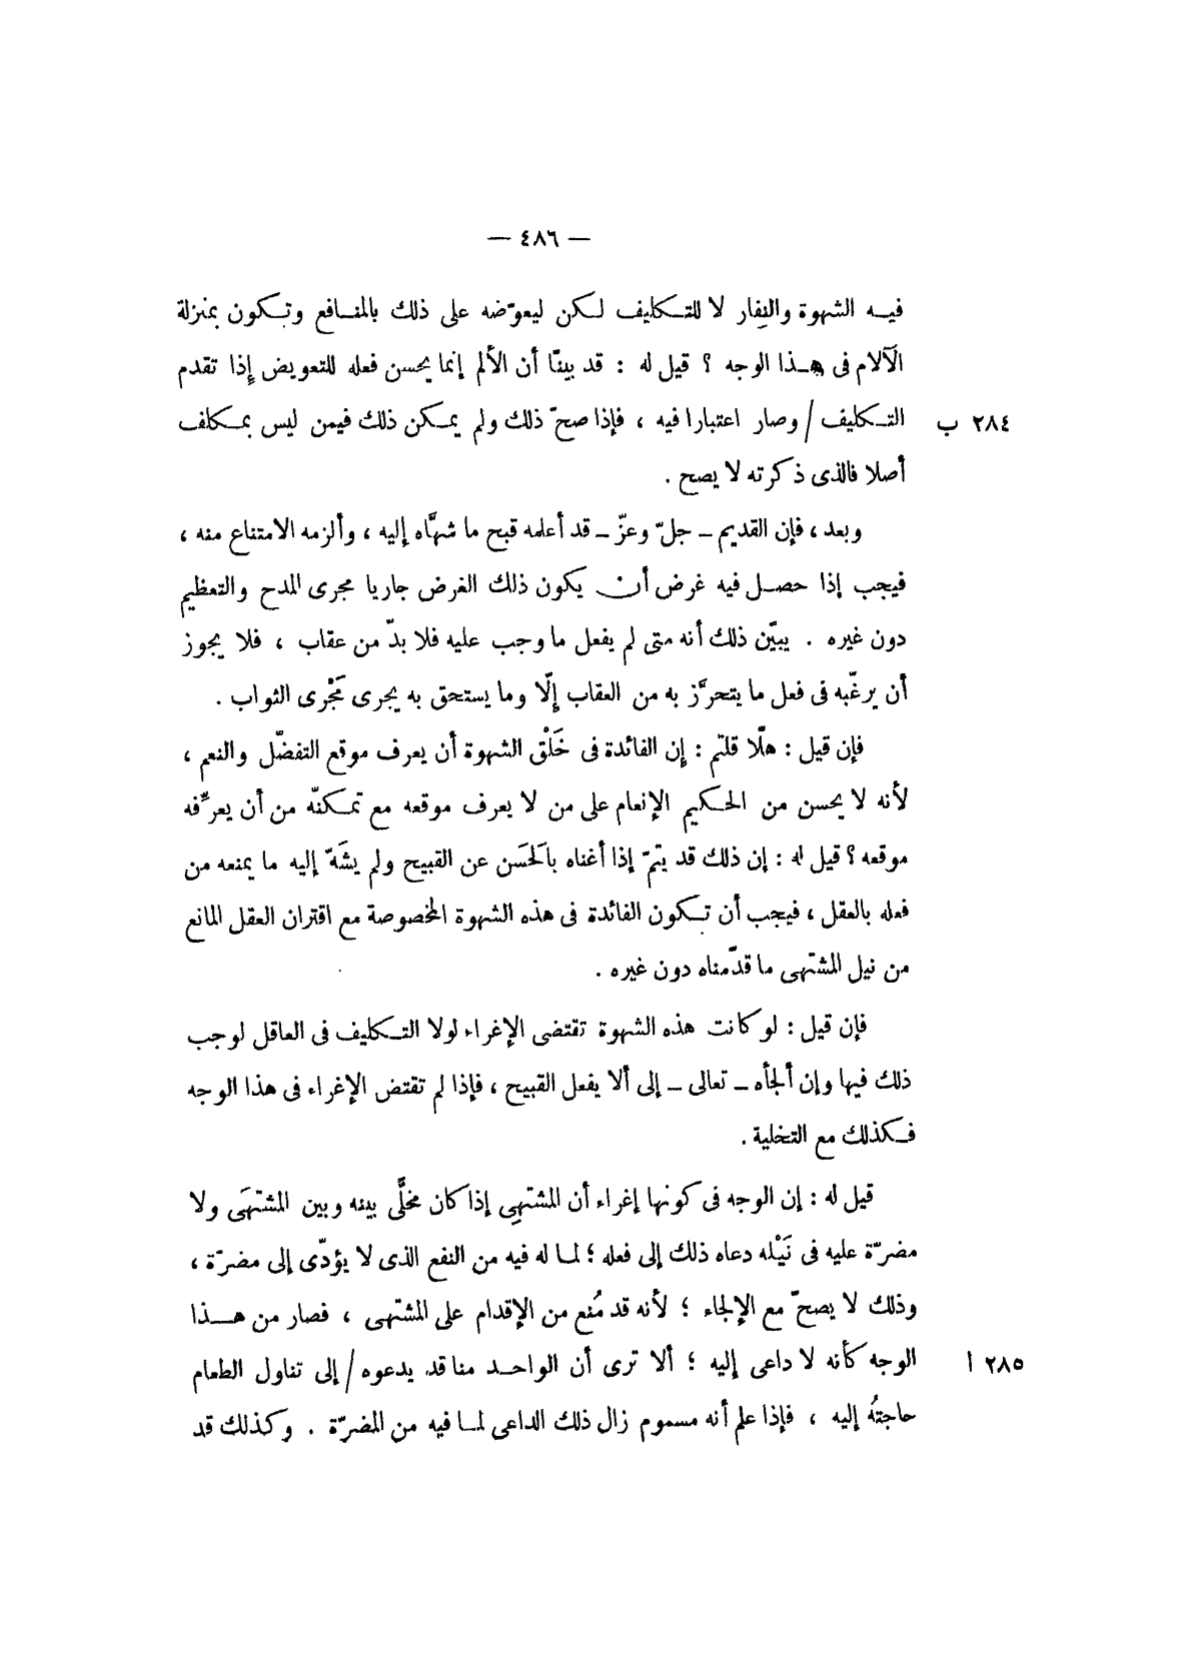 — ٤٨٦ —
فيه الشهوة والنِفار لا للتكليف لكن ليعوّضه على ذلك بالمنافع وتكون بمنزلة
الآلام فى هذا الوجه ؟ قيل له : قد بينّا أن الألم إنما يحسن فعله للتعويض إذا تقدم
التكليف / وصار اعتبارا فيه ، فإذا صحّ ذلك ولم يمكن ذلك فيمن ليس بمكلف ٢٨٤ ب
أصلا فالذى ذكرته لا يصح .
وبعد ، فإن القديم – جلّ وعزّ – قد أعلمه قبح ما شهَّاه إليه ، وألزمه الامتناع منه ،
فيجب إذا حصل فيه غرض أن يكون ذلك الغرض جاريا مجرى المدح والتعظيم
دون غيره . يبيّن ذلك أنه متى لم يفعل ما وجب عليه فلا بدّ من عقاب ، فلا يجوز
أن يرغّبه فى فعل ما يتحرَّز به من العقاب إلّا وما يستحق به يجرى مَجْرى الثواب .
فإن قيل : هلّا قلتم : إن الفائدة فى خَلْق الشهوة أن يعرف موقع التفضّل والنعم ،
لأنه لا يحسن من الحكيم الإنعام على من لا يعرف موقعه مع تمكنّه من أن يعرّفه
موقعه ؟ قيل له : إن ذلك قد يتمّ إذا أغناه بالحَسَن عن القبيح ولم يشَهّ إليه ما يمنعه من
فعله بالعقل ، فيجب أن تكون الفائدة فى هذه الشهوة المخصوصة مع اقتران العقل المانع
من نيل المشتهى ما قدّمناه دون غيره .
فإن قيل : لو كانت هذه الشهوة تقتضى الإغراء لولا التكليف فى العاقل لوجب
ذلك فيها وإن ألجأه – تعالى – إلى ألا يفعل القبيح ، فإذا لم تقتض الإغراء فى هذا الوجه
فكذلك مع التخلية .
قيل له : إن الوجه فى كونها إغراء أن المشتهِى إذا كان مخلًّى بينه وبين المشتهَى ولا
مضرّة عليه فى نَيْله دعاه ذلك إلى فعله ؛ لما له فيه من النفع الذى لا يؤدّى إلى مضرّة ،
وذلك لا يصحّ مع الإلجاء ؛ لأنه قد مُنع من الإقدام على المشتهى ، فصار من هذا
الوجه كأنه لا داعى إليه ؛ ألا ترى أن الواحد منا قد يدعوه / إلى تناول الطعام ٢٨٥ ا
حاجتُه إليه ، فإذا علم أنه مسموم زال ذلك الداعى لما فيه من المضرّة . وكذلك قد